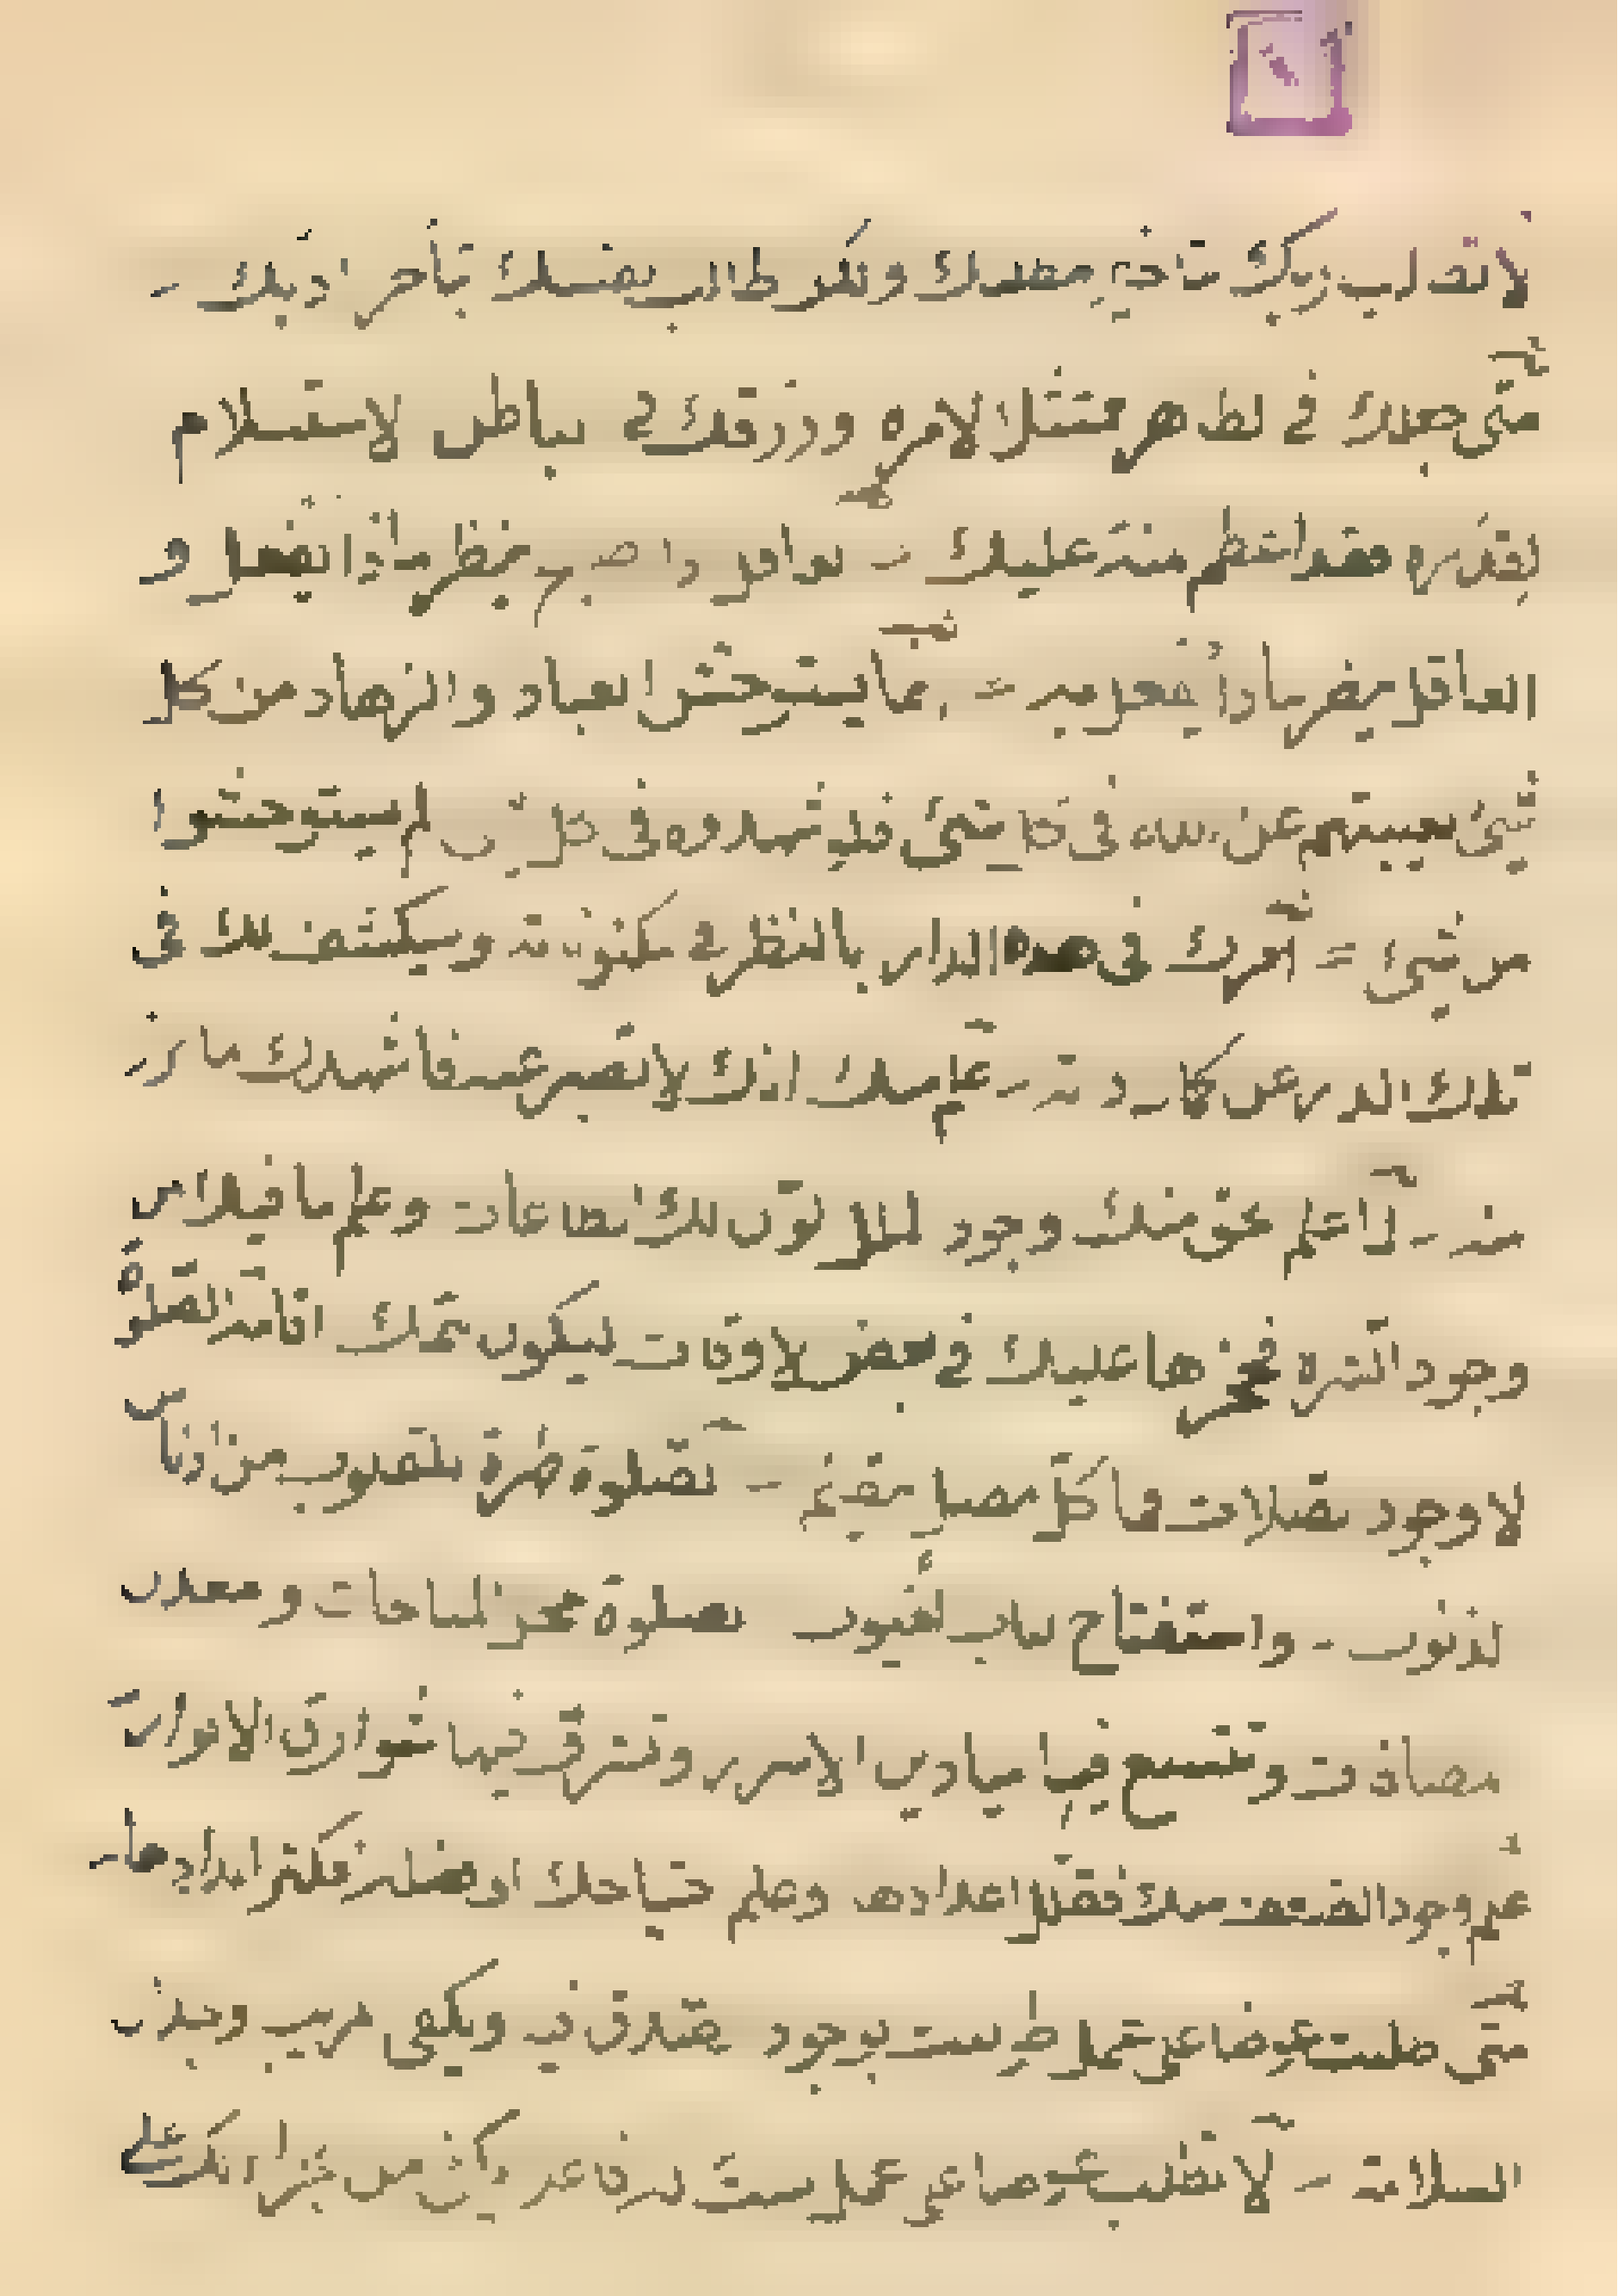 لا تطالب ربك بتأخير مطلبك ولكن طالب نفسك بتأخر ادبك
متى جعلك في الظاهر ممتثلا لامره ورزقك في الباطن الاستسلام
لقهره فقد اعظم المنة عليك الغافل اذا اصبح ينظر ماذا يفعل و
العاقل ينظر ماذا يفعل به انما يستوحش العباد والزهاد من كل
شيئ لغيبتهم عن الله في كل شيئ فلو شهدوه في كل شيئ لم يستوحشوا
من شيئ امرك في هذه الدار بالنظر في مكنوناته وسيكشف لك في
تلك الدار عن كمال ذاته علم منك انك لا تصبر عنه فاشهدك ما برز
منه لما علم الحق منك وجود الملل لون لك الطاعات وعلم ما فيك من
وجود الشره فحجرها عليك في بعض الاوقات ليكون همك اقامة الصلوة
لا وجود الصلات فما كل مصل مقيم الصلوة طهرة للقلوب من ادناس
الذنوب واستفتاح لباب الغيوب الصلوة محل المناجات ومعدن
المصافات وتتسع فيها ميادين الاسرار وتشرق فيها شوارق الانوار
علم وجود الضعف منك فقلل اعدادها وعلم احتياجك الى فضله فكثر امدادها
متى طلبت عوضا على عمل طولبت بوجود الصدق فيه ويكفي المريب وجدان
السلامة لا تطلب عوضا على عمل لست له فاعلا يكفي من الجزاء لك على